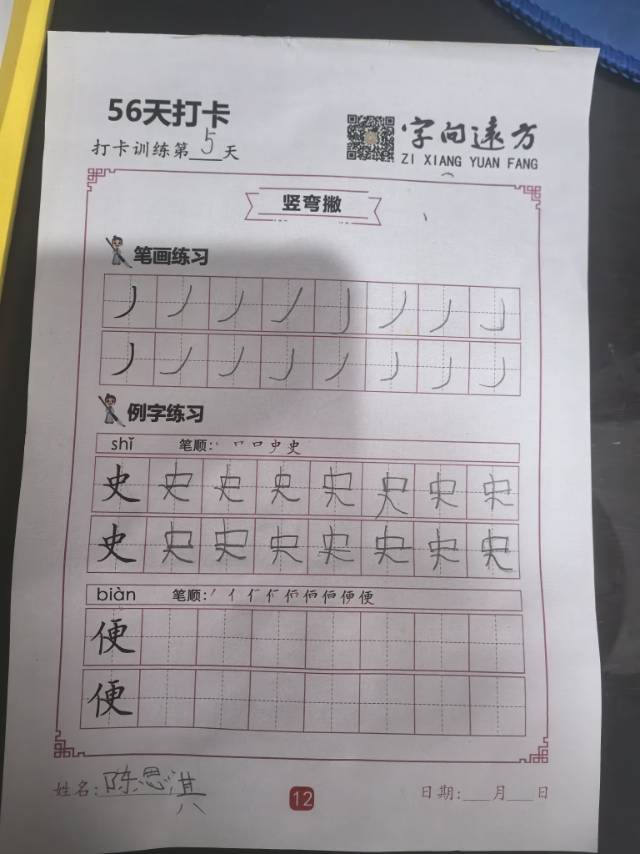 56天打卡
打卡训练第5天
字向远方
ZI XIANG YUAN FANG
竖弯撇
笔画练习
丿 丿 丿 丿 丿 丿 丿 丿
丿 丿 丿 丿 丿 丿 丿 丿
例字练习
shǐ 笔顺: 丨 冖 口 史 史
史 史 史 史 史 史 史 史
史 史 史 史 史 史 史 史
biàn 笔顺: 丿 亻 仁 何 佰 佰 佰 便 便
便
便
姓名:陈思淇
12
日期:___月___日